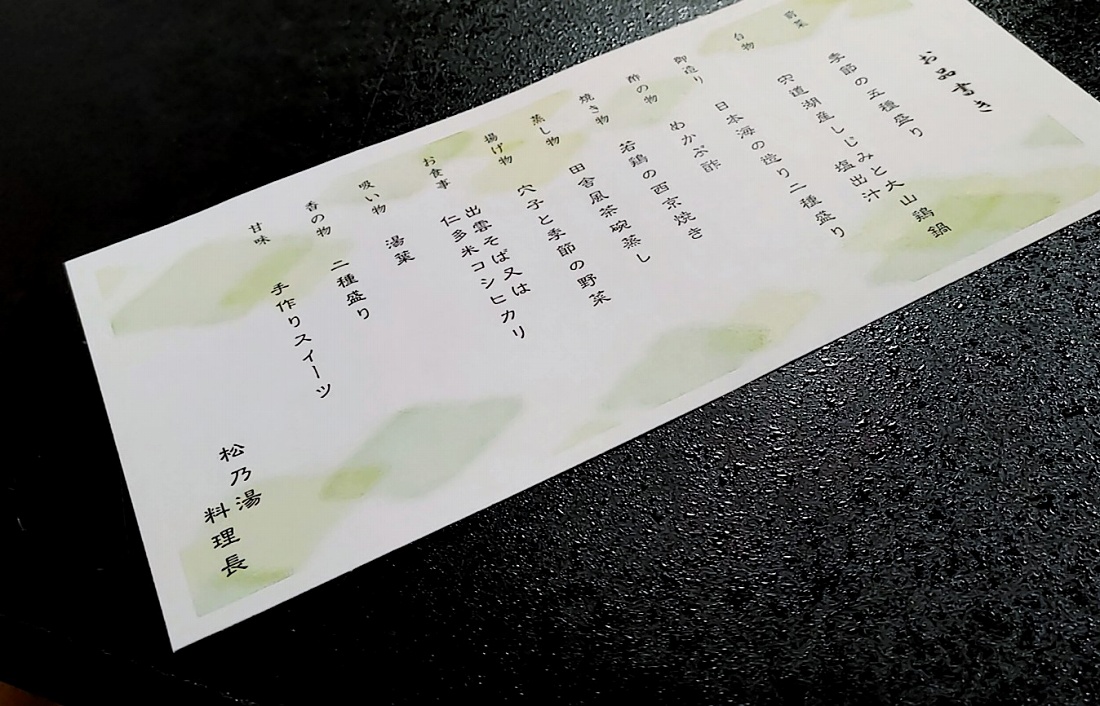 お品書き
前菜 季節の五種盛り
台物 宍道湖産しじみと大山鶏鍋
塩出汁
御造り 日本海の造り二種盛り
酢の物 めかぶ酢
焼き物 若鶏の西京焼き
蒸し物 田舎風茶碗蒸し
揚げ物 穴子と季節の野菜
お食事 出雲そば又は
仁多米コシヒカリ
吸い物 湯葉
香の物 二種盛り
甘味 手作りスイーツ
松乃湯
料理長